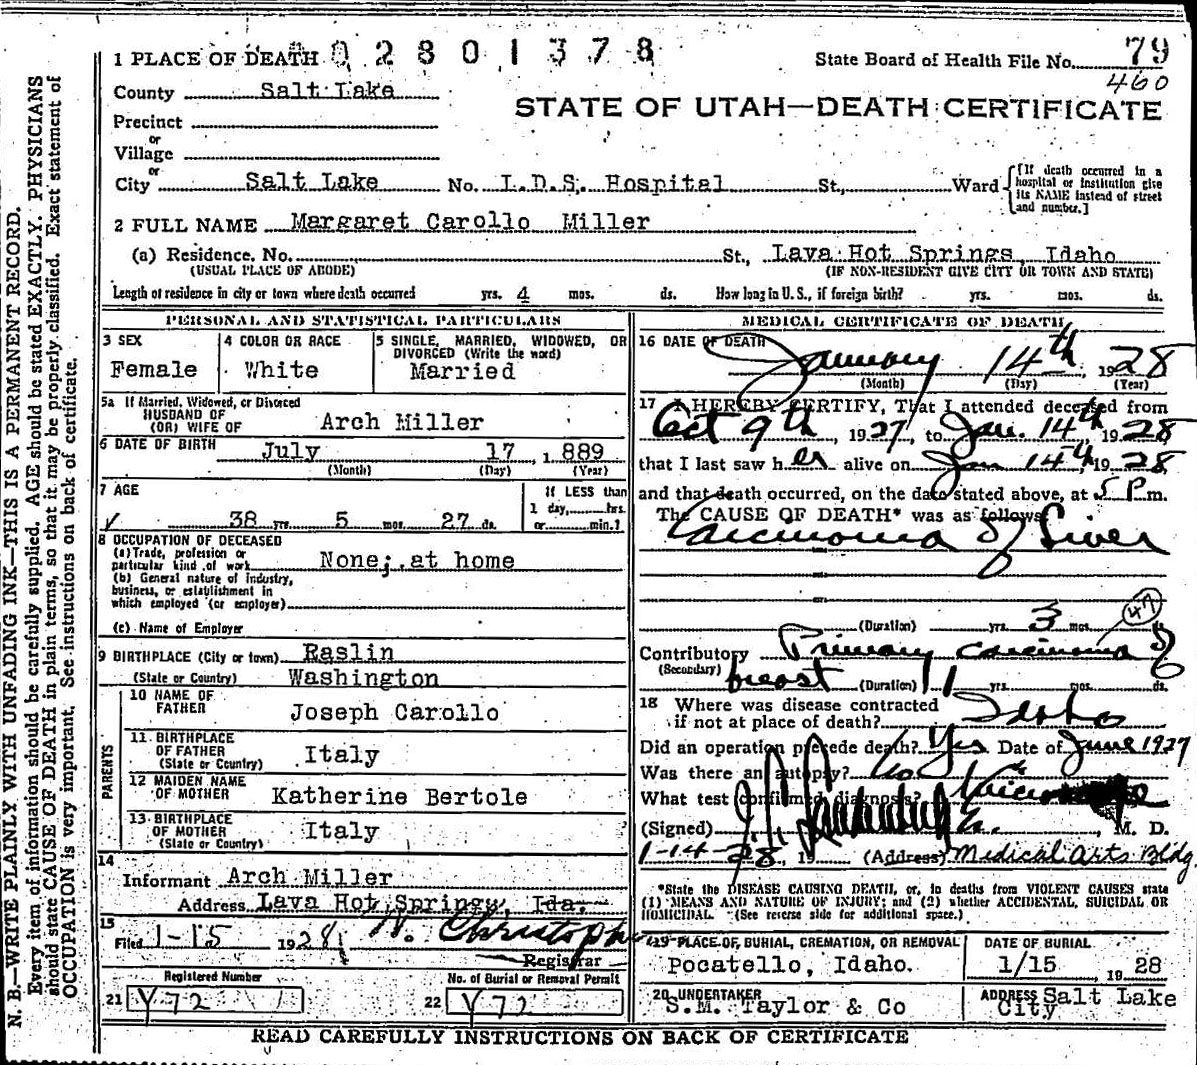 1 PLACE OF DEATH 02801378
State Board of Health File No. 79
460
County Salt Lake
STATE OF UTAH—DEATH CERTIFICATE
Precinct
or
Village
or
City Salt Lake No. L.D.S. Hospital St., Ward {[If death occurred in a hospital or institution give its NAME instead of street and number.]
2 FULL NAME Margaret Carollo Miller
(a) Residence. No. St., Lava Hot Springs, Idaho
(USUAL PLACE OF ABODE) (IF NON-RESIDENT GIVE CITY OR TOWN AND STATE)
Length of residence in city or town where death occurred yrs. 4 mos. ds. How long in U.S., if foreign birth? yrs. mos. ds.
PERSONAL AND STATISTICAL PARTICULARS
3 SEX
Female
4 COLOR OR RACE
White
5 SINGLE, MARRIED, WIDOWED, OR
DIVORCED (Write the word)
Married
5a If Married, Widowed, or Divorced
HUSBAND OF
(OR) WIFE OF Arch Miller
6 DATE OF BIRTH July 17, 1889
(Month) (Day) (Year)
7 AGE
If LESS than
1 day, hrs.
or min.?
38 yrs. 5 mos. 27 ds.
8 OCCUPATION OF DECEASED
(a) Trade, profession or
particular kind of work None; at home
(b) General nature of industry,
business, or establishment in
which employed (or employer)
(c) Name of Employer
9 BIRTHPLACE (City or town) Raslin
(State or Country) Washington
PARENTS
10 NAME OF
FATHER Joseph Carollo
11 BIRTHPLACE
OF FATHER Italy
(State or Country)
12 MAIDEN NAME
OF MOTHER Katherine Bertole
13 BIRTHPLACE
OF MOTHER Italy
(State or Country)
14
Informant Arch Miller
Address Lava Hot Springs, Ida.
15
Filed 1-15 1928
Registrar
Registered Number
21 Y 72
No. of Burial or Removal Permit
22 Y 72
MEDICAL CERTIFICATE OF DEATH
16 DATE OF DEATH January 14th, 1928
(Month) (Day) (Year)
17 I HEREBY CERTIFY, That I attended deceased from
Oct 9th, 1927, to Jan. 14th, 1928
that I last saw her alive on Jan 14th, 1928,
and that death occurred, on the date stated above, at 5 P.m.
The CAUSE OF DEATH* was as follows:
Carcinoma of Liver
(Duration) yrs. 3 mos. ds.
47
Contributory Primary carcinoma of
(Secondary) breast (Duration) 1 yrs. mos. ds.
18 Where was disease contracted
if not at place of death? Idaho
Did an operation precede death? Yes Date of June 1927
Was there an autopsy? No
What test confirmed diagnosis?
(Signed) , M. D.
1-14-28, 19 (Address) Medical Arts Bldg.
*State the DISEASE CAUSING DEATH, or, in deaths from VIOLENT CAUSES state
(1) MEANS AND NATURE OF INJURY; and (2) whether ACCIDENTAL, SUICIDAL OR
HOMICIDAL. (See reverse side for additional space.)
19 PLACE OF BURIAL, CREMATION, OR REMOVAL
Pocatello, Idaho.
DATE OF BURIAL
1/15 1928
20 UNDERTAKER
S.M. Taylor & Co
ADDRESS Salt Lake
City
READ CAREFULLY INSTRUCTIONS ON BACK OF CERTIFICATE
N. B.—WRITE PLAINLY WITH UNFADING INK—THIS IS A PERMANENT RECORD.
Every item of information should be carefully supplied. AGE should be stated EXACTLY. PHYSICIANS
should state CAUSE OF DEATH in plain terms, so that it may be properly classified. Exact statement of
OCCUPATION is very important. See instructions on back of certificate.